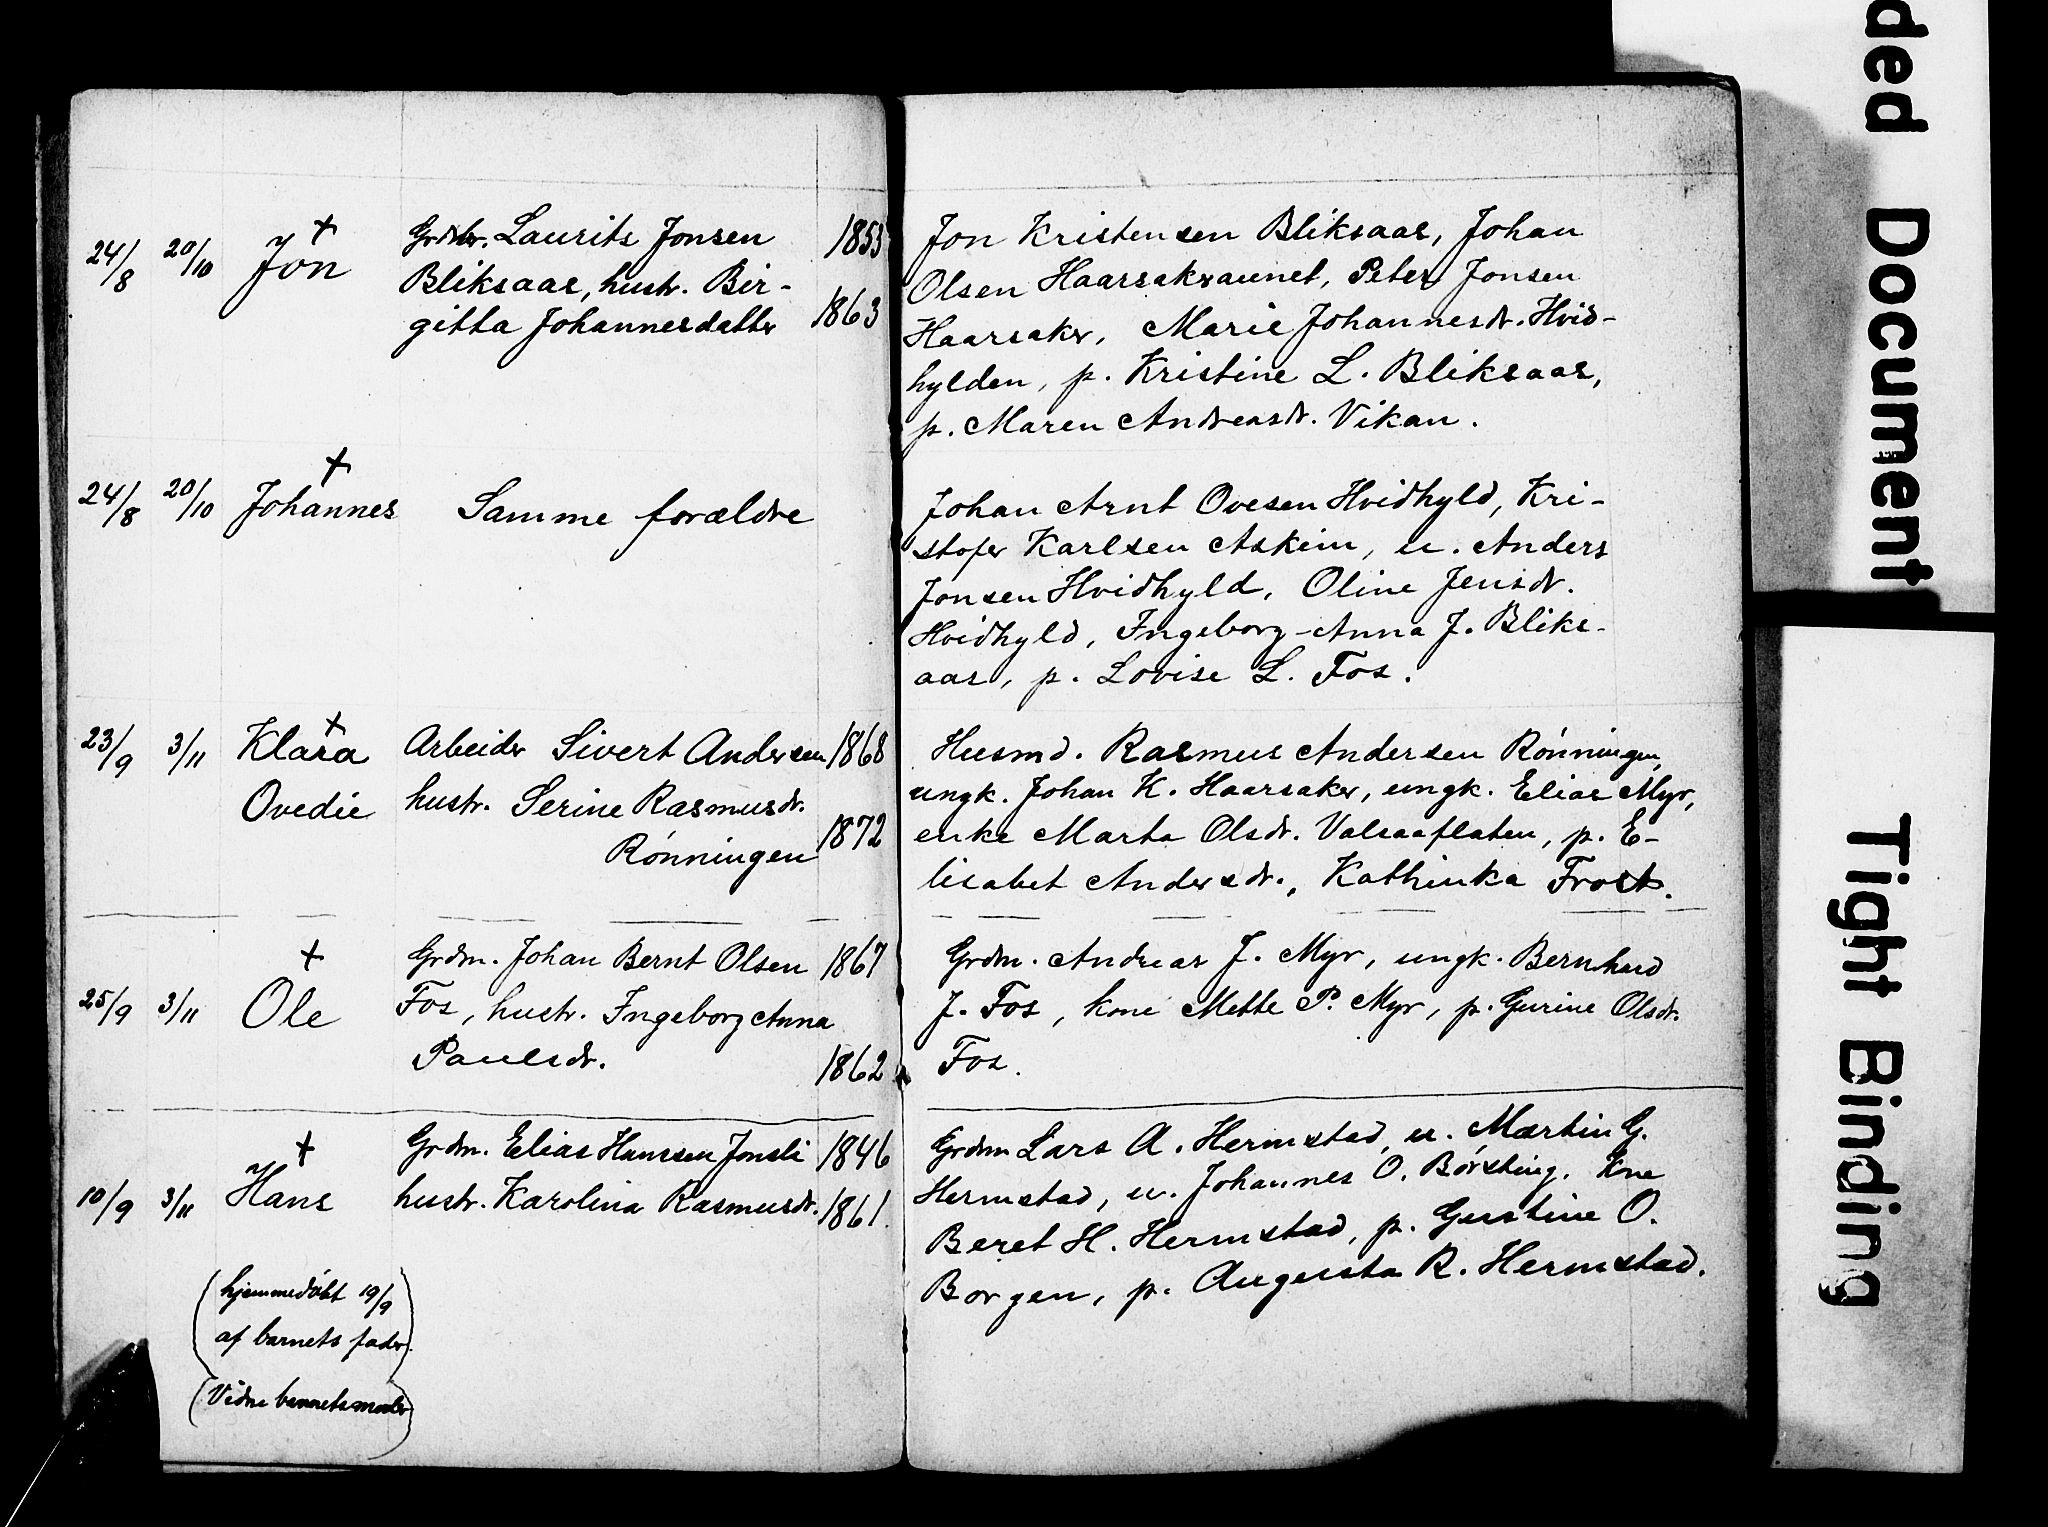 24/8 20/10 Jon Grdbr. Laurits Jonsen 1853
Bliksaas, hustr. Bir-
gitta Johannesdatter 1863
Jon Kristensen Bliksaas, Johan
Olsen Haarsakraunet, Peter Jonsen
Haarsaker, Marie Johannesdr. Hvid-
hylden, p. Kristine L. Bliksaas,
p. Maren Andreasdr. Vikan.
24/8 20/10 Johannes Samme forældre
Johan Arnt Ovesen Hvidhyld, Kri-
stofer Karlsen Askim, u. Anders
Jonsen Hvidhyld, Oline Jensdr.
Hvidhyld, Ingeborg-Anna J. Bliks-
aas, p. Lovise L. Fos.
23/9 3/11 Klara Arbeider Sivert Andersen 1868
Ovedie hustr. Serine Rasmusdr.
Rønningen 1872
Husmd. Rasmus Andersen Rønningen,
ungk. Johan K. Haarsaker, ungk. Elias Myr,
enke Marta Olsdr. Valsaaflaten, p. E-
lisabet Andersdr., Kathinka Frost.
Grdm. Johan Bernt Olsen 1867
25/9 3/11 Ole Fos, hustr. Ingeborg Anna
Paulsdr. 1862
Grdm. Andreas J. Myr, ungk. Bernhard
J. Fos, kone Mette P. Myr, p. Gurine Olsdr.
Fos.
Grdm. Elias Hanssen Jonsli 1846
10/9 3/11 Hans hustr. Karolina Rasmusdr. 1861.
(hjemmedøbt 19/9
af barnets fader)
(Vidne barnets moder)
Grdm Lars A. Hermstad, u. Martin G.
Hermstad, u. Johannes O. Børsting. Kne
Beret H. Hermstad, p. Gustine O.
Borgen, p. Augusta R. Hermstad.
ded Document
Tight Binding